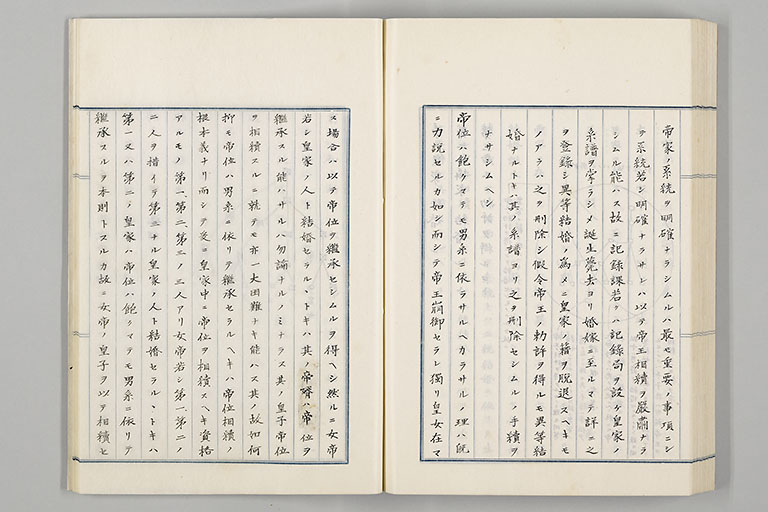 帝家ノ系統ヲ明確ナラシムルハ最モ重要ノ事項ニシ
テ系統若シ明確ナラサレハ以テ帝王相續ヲ嚴肅ナラ
シムル能ハス故ニ記録課若クハ記録局ヲ設ケ皇家ノ
系譜ヲ掌ラシメ誕生薨去ヨリ婚嫁ニ至ルマテ詳ニ之
ヲ登録シ異等結婚ノ為メニ皇家ノ籍ヲ脱退スヘキモ
ノアラハ之ヲ刪除シ假令帝王ノ勅許ヲ得ルモ異等結
婚ナルトキハ其ノ系譜ヨリ之ヲ刪除セシムルノ手續ヲ
ナサシムヘシ
帝位ハ飽クマテモ男系ニ依ラサルヘカラサルノ理ハ既
ニ力説セルカ如シ而シテ帝王崩御セラレ獨リ皇女在マ
ス場合ハ以テ帝位ヲ繼承セシムルヲ得ヘシ然ルニ女帝
若シ皇家ノ人ト結婚セラルヽトキハ其ノ帝壻ハ帝位ヲ
繼承スル能ハサルハ勿論ナルノミナラス其ノ皇子帝位
ヲ相續スルニ就テモ亦一大困難ナキ能ハス其ノ故如何
抑モ帝位ハ男系ニ依リテ繼承セラルヘキハ帝位相續ノ
根本義ナリ而シテ爰ニ皇家中ニ帝位ヲ相續スヘキ資格
アルモノ第一、第二、第三ノ三人アリ女帝若シ第一、第二ノ
二人ヲ措イテ第三ナル皇家ノ人ト結婚セラルヽトキハ
第一又ハ第二ノ皇家ハ帝位ハ飽クマテモ男系ニ依リテ
繼承スルヲ本則トスルカ故ニ女帝ノ皇子ヲ以テ相續セ